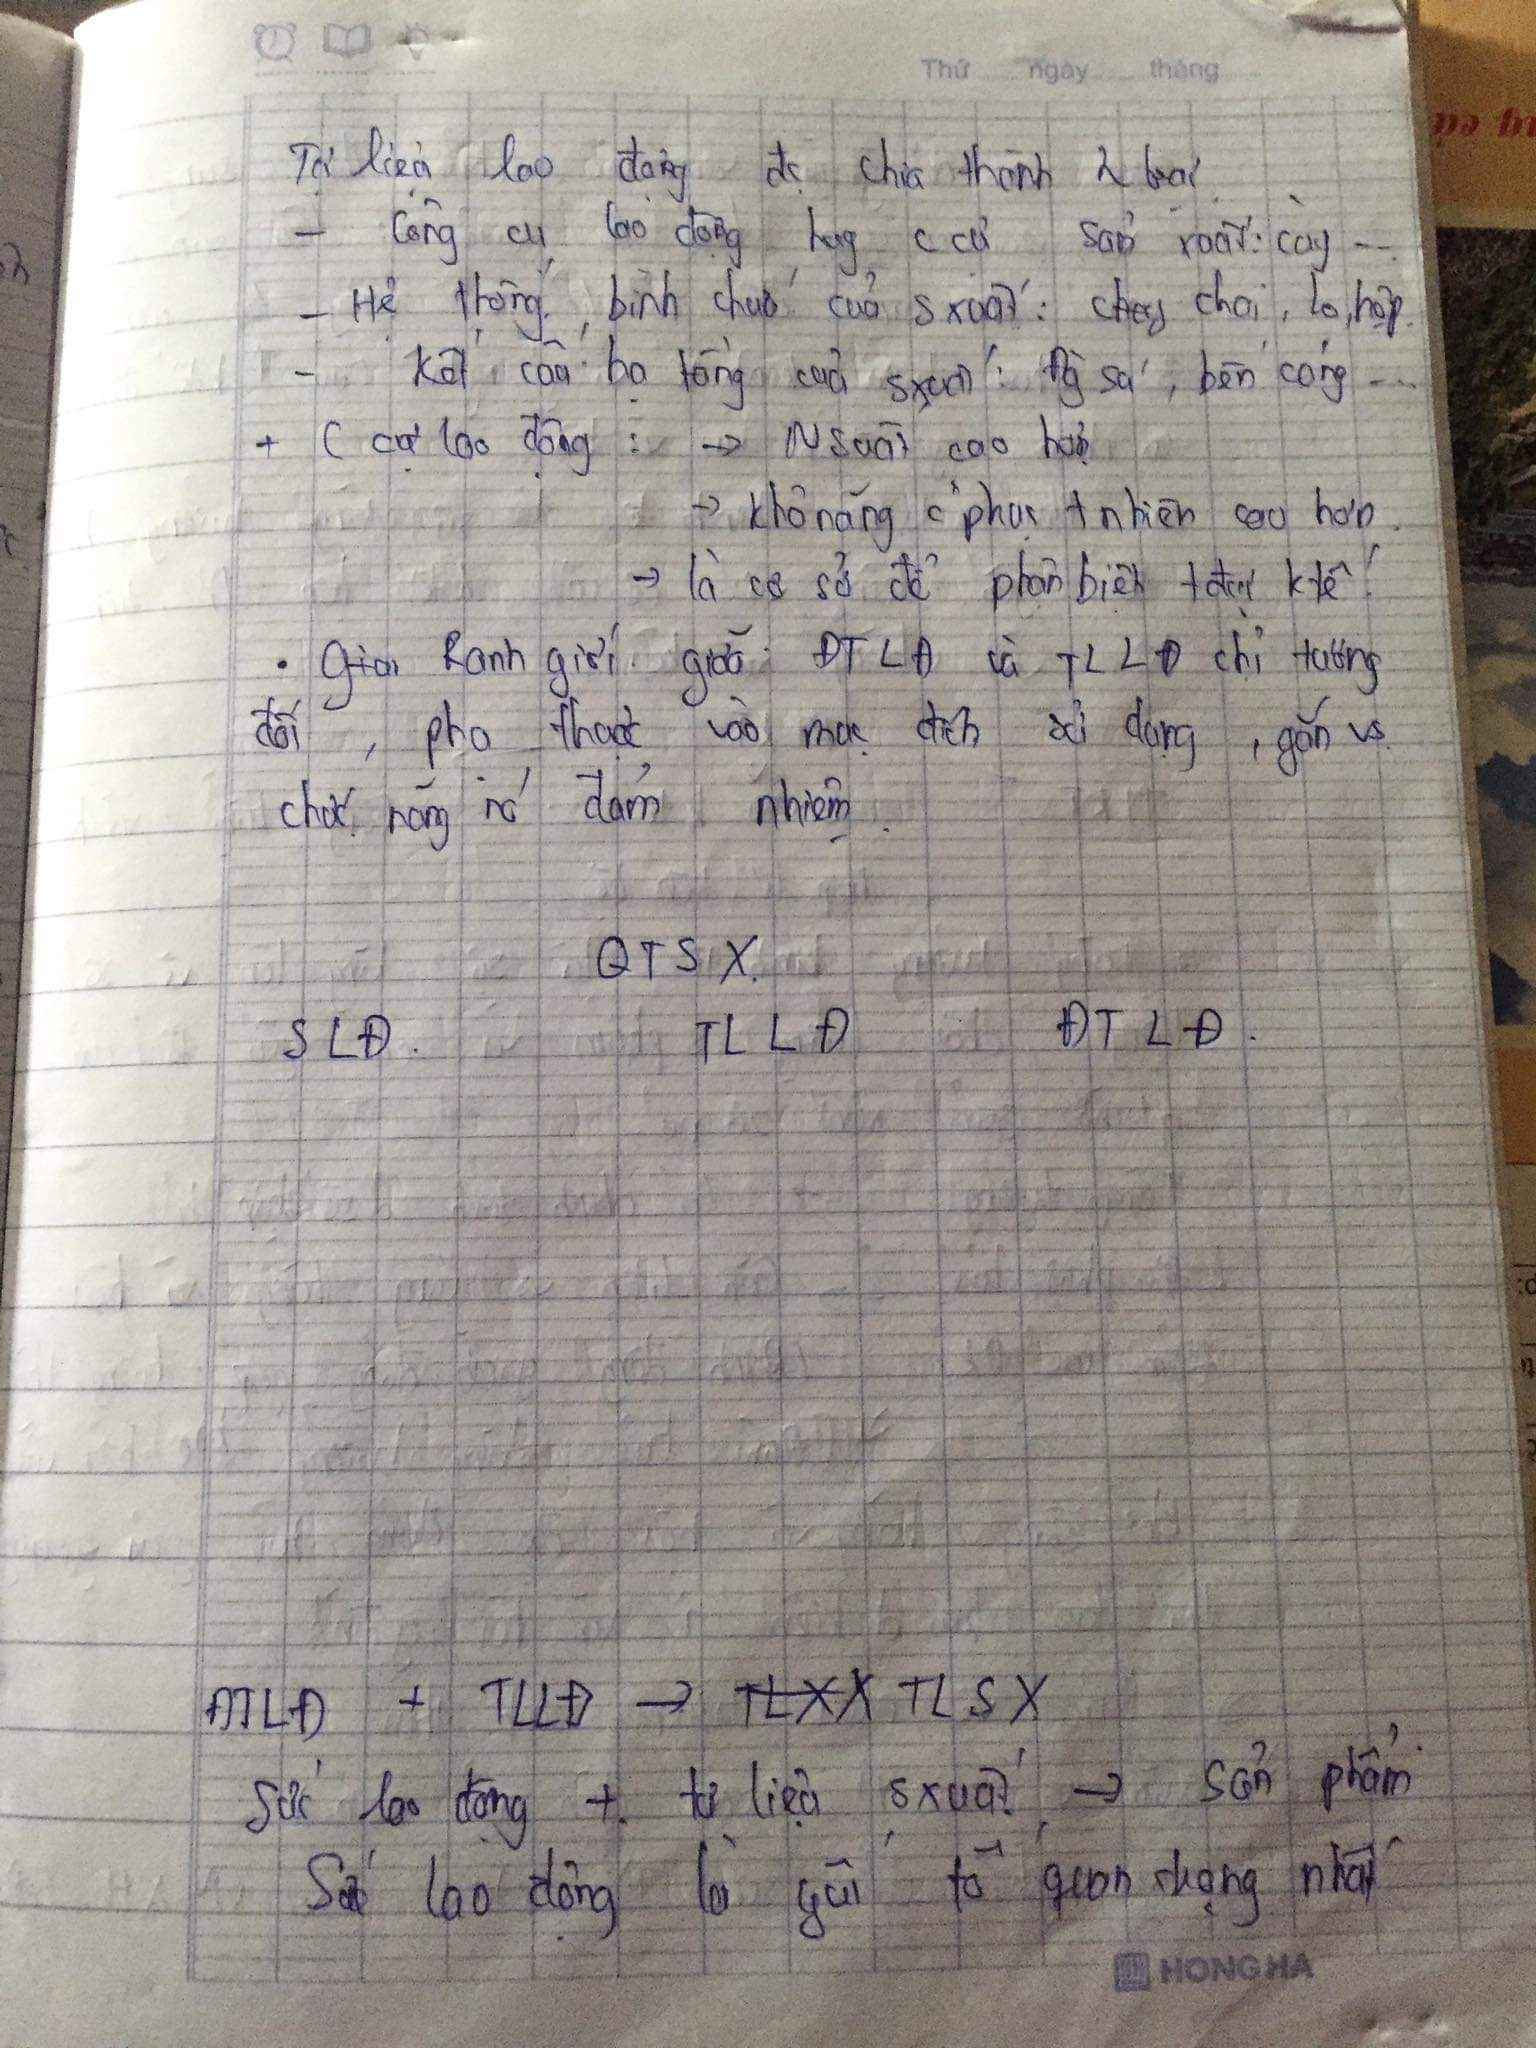 Thứ ngày tháng
Tư liệu lao động đc chia thành 2 loại
- Công cụ lao động hay c cụ sản xuất: cày ...
- Hệ thống bình chứa của sxuất: chay chai, lọ, hộp.
- Kết cấu hạ tầng của sxuất: đg sá, bến cảng ...
+ C cụ lao động: → N suất cao hơn
→ khả năng c phục t nhiên cao hơn.
→ là cơ sở để phân biệt tđại ktế!
• Giai Ranh giới giữa ĐTLĐ và TLLĐ chỉ tương
đối, phụ thuộc vào mục đích sử dụng, gắn vs
chức năng nó đảm nhiệm.
QTSX.
SLĐ. TLLĐ ĐTLĐ.
ĐTLĐ + TLLĐ → TLXX TLSX
Sức lao động + tư liệu sxuất → sản phẩm
Sức lao động là yếu tố quan trọng nhất
HONG HA